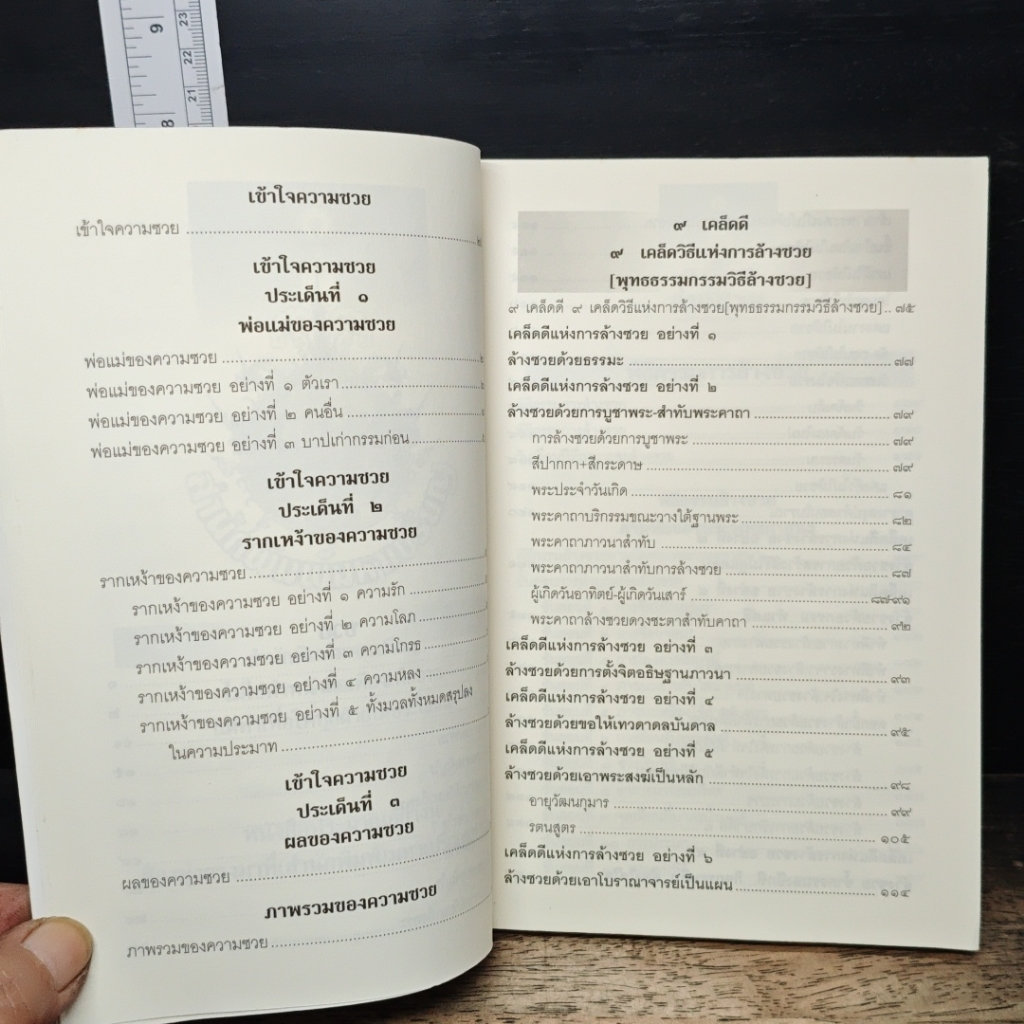 9
8
23
22
21
เข้าใจความซวย
เข้าใจความซวย
เข้าใจความซวย
ประเด็นที่ ๑
พ่อแม่ของความซวย
พ่อแม่ของความซวย
พ่อแม่ของความซวย อย่างที่ ๑ ตัวเรา
พ่อแม่ของความซวย อย่างที่ ๒ คนอื่น
พ่อแม่ของความซวย อย่างที่ ๓ บาปเก่ากรรมก่อน
เข้าใจความซวย
ประเด็นที่ ๒
รากเหง้าของความซวย
รากเหง้าของความซวย
รากเหง้าของความซวย อย่างที่ ๑ ความรัก
รากเหง้าของความซวย อย่างที่ ๒ ความโลภ
รากเหง้าของความซวย อย่างที่ ๓ ความโกรธ
รากเหง้าของความซวย อย่างที่ ๔ ความหลง
รากเหง้าของความซวย อย่างที่ ๕ ทั้งมวลทั้งหมดสรุปลง
ในความประมาท
เข้าใจความซวย
ประเด็นที่ ๓
ผลของความซวย
ผลของความซวย
ภาพรวมของความซวย
ภาพรวมของความซวย
๙ เคล็ดดี
๙ เคล็ดวิธีแห่งการล้างซวย
[พุทธธรรมกรรมวิธีล้างซวย]
๙ เคล็ดดี ๙ เคล็ดวิธีแห่งการล้างซวย[พุทธธรรมกรรมวิธีล้างซวย].. ๗๕
เคล็ดดีแห่งการล้างซวย อย่างที่ ๑
ล้างซวยด้วยธรรมะ ๗๗
เคล็ดดีแห่งการล้างซวย อย่างที่ ๒
ล้างซวยด้วยการบูชาพระ-สำทับพระคาถา ๗๙
การล้างซวยด้วยการบูชาพระ ๗๙
สีปากกา+สีกระดาษ ๗๙
พระประจำวันเกิด ๘๑
พระคาถาบริกรรมขณะวางใต้ฐานพระ ๘๒
พระคาถาภาวนาสำทับ ๘๕
พระคาถาภาวนาสำทับการล้างซวย ๘๗
ผู้เกิดวันอาทิตย์-ผู้เกิดวันเสาร์ ๘๗-๙๖
พระคาถาล้างซวยดวงชะตาสำทับคาถา ๙๒
เคล็ดดีแห่งการล้างซวย อย่างที่ ๓
ล้างซวยด้วยการตั้งจิตอธิษฐานภาวนา ๙๓
เคล็ดดีแห่งการล้างซวย อย่างที่ ๔
ล้างซวยด้วยขอให้เทวดาดลบันดาล ๙๕
เคล็ดดีแห่งการล้างซวย อย่างที่ ๕
ล้างซวยด้วยเอาพระสงฆ์เป็นหลัก ๙๘
อายุวัฒนกุมาร ๙๙
รตนสูตร ๑๐๕
เคล็ดดีแห่งการล้างซวย อย่างที่ ๖
ล้างซวยด้วยเอาโบราณาจารย์เป็นแผน ๑๑๔